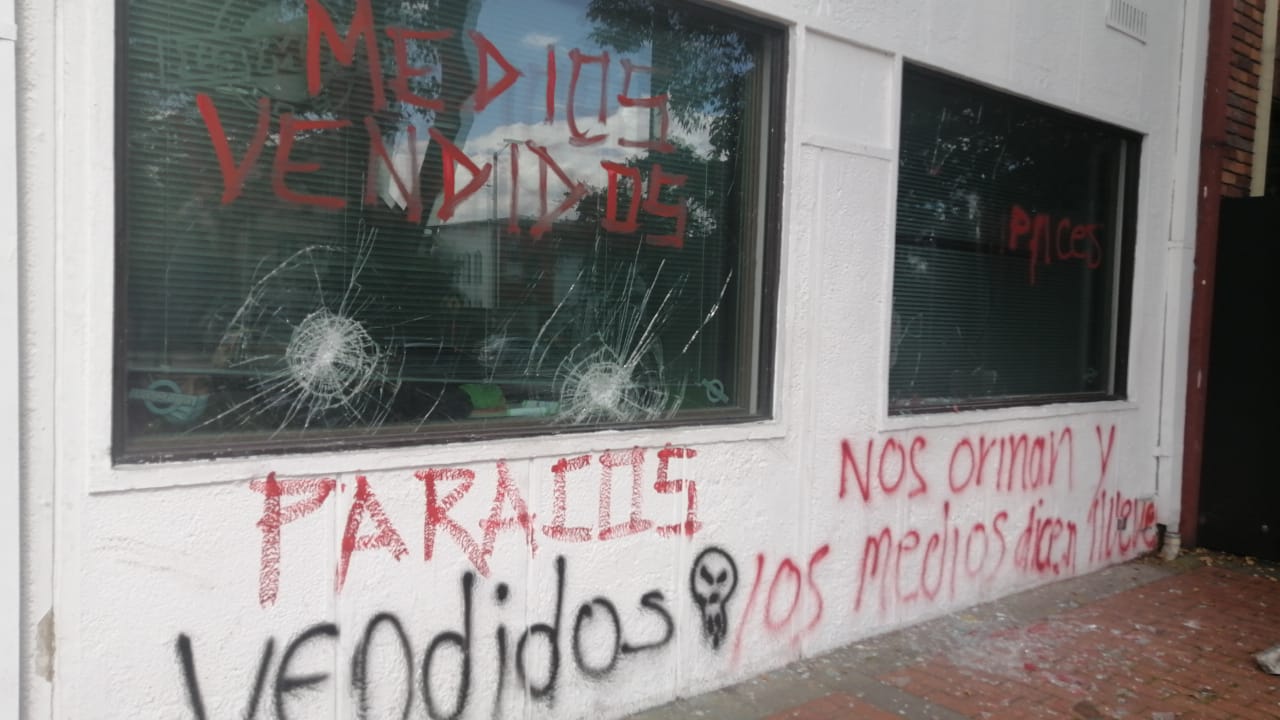 MEDIOS
VENDIDOS
PARACOS
vendidos
Nos orinan y
los medios dicen llueve